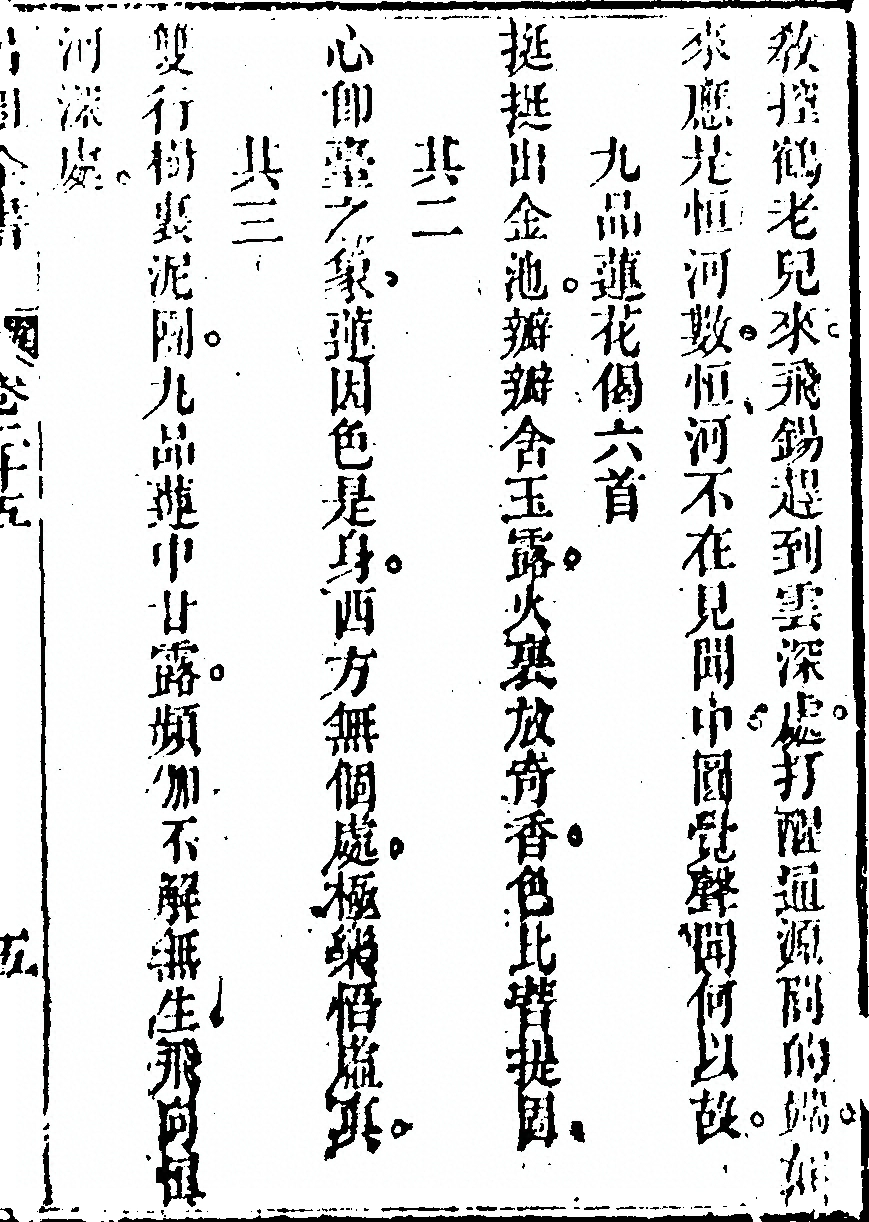 敎控鶴老兒來飛錫趕到雲深處打醒通源閣的端如
來應是恒河數恒河不在見聞中圓覺聲聞何以故
九品蓮花偈六首
挺挺出金池瓣瓣含玉露火裏放奇香色比菩提固
其二
心卽臺之篆蓮因色是身西方無個處極樂悟虛真
其三
雙行樹裏泥團九品蓮中甘露頻伽不解無生飛向恒
河深處
卷二十五
五